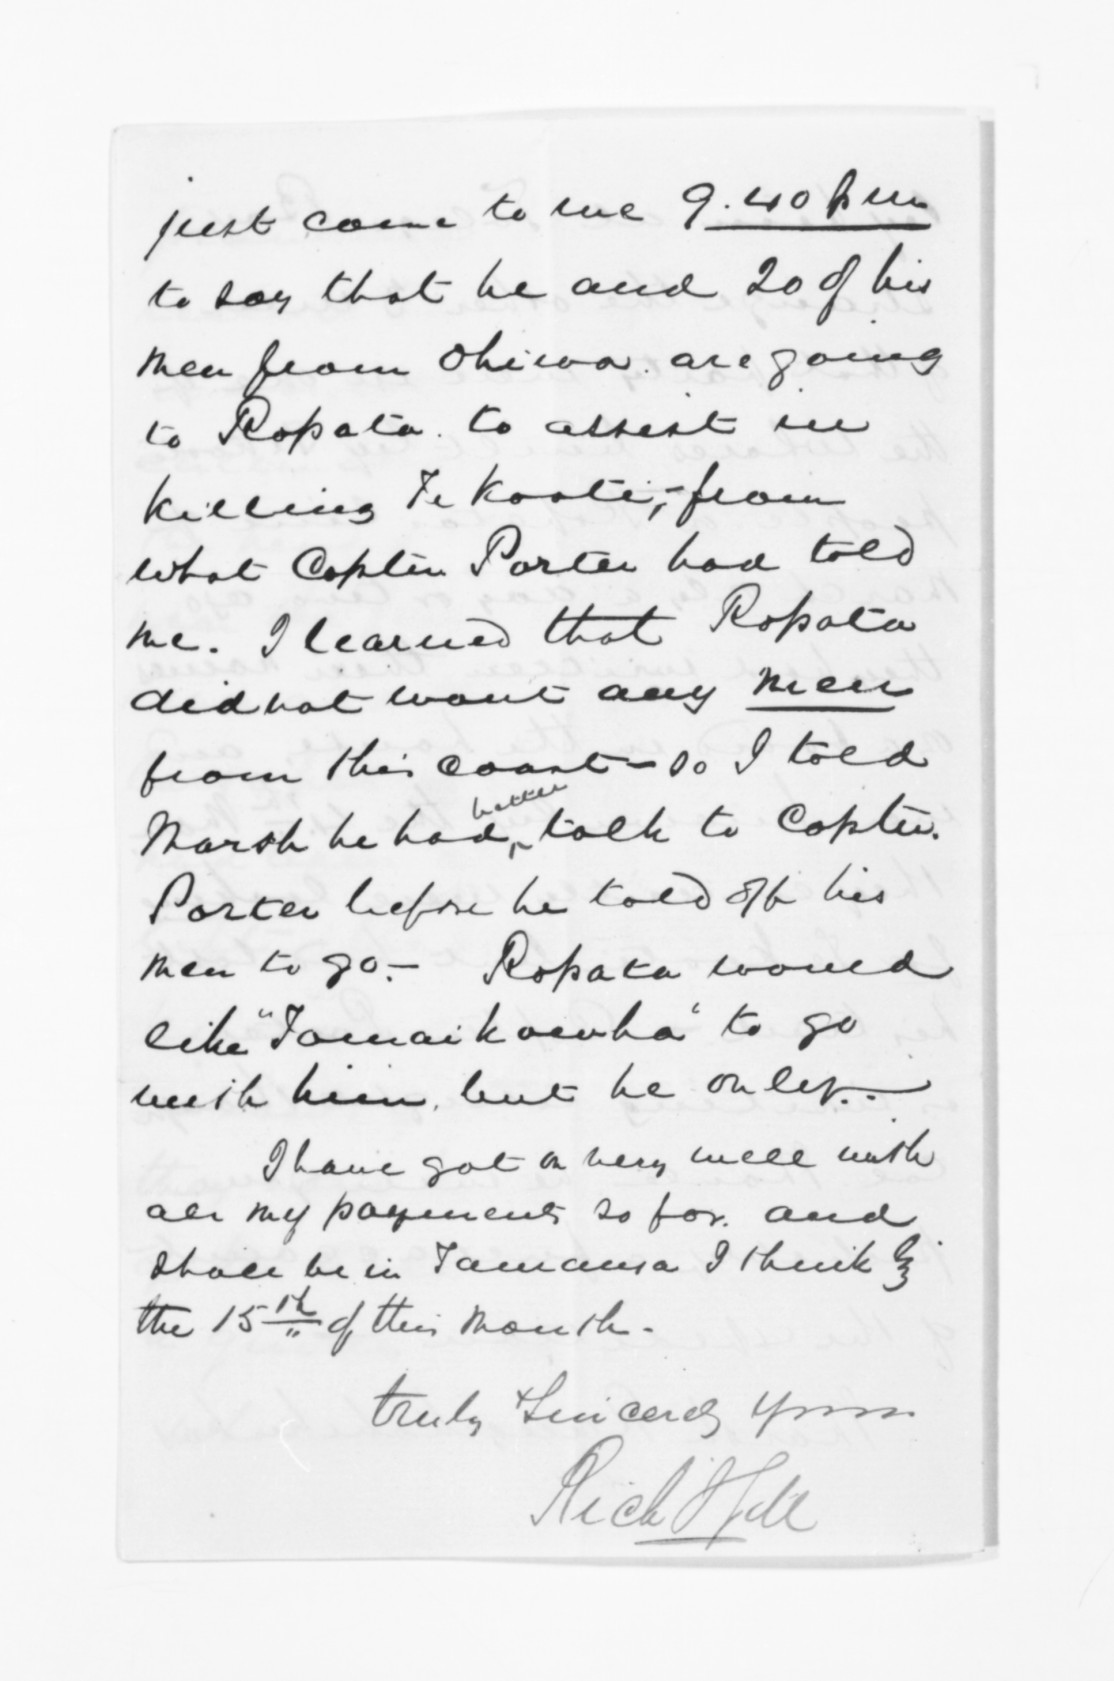 just come to me 9.40 pm
to say that he and 20 of his
men from Ohiwa. are going
to Ropata. to assist in
killing Te Kooti,- from
what Captn Porter had told
me. I learned that Ropata
did not want any men
from this coast - so I told
Marsh he had better talk to Captn.
Porter before he told off his
men to go. - Ropata would
like "Tamaikowha" to go
with him, but he only. -
I have got on very well with
all my payments so far. and
shall be in Tauranga I think by
the 15th of this month.
truly & Sincerely yours
Rich